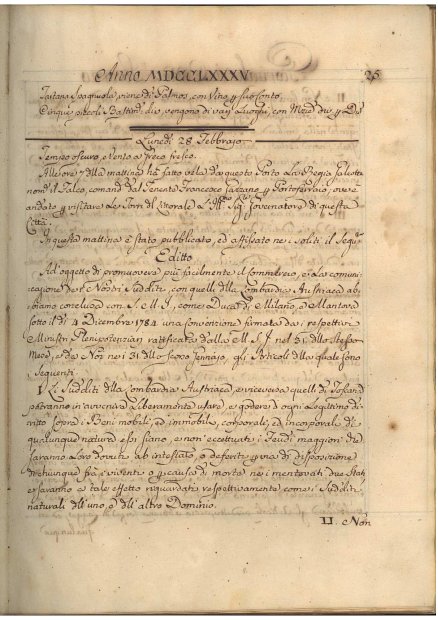 Anno MDCCLXXXV 25
Tartana Spagnuola viene di Palmos, con Vino p suo conto.
Cinque piccoli Bastim: che vengono da varj Luoghi, con Merc: div: p Div:
Lunedì 28 Febbrajo
Tempo oscuro, e vento a Greco fresco.
Alle ore 7 della mattina ha fatto vela da questo Porto La Regia
no: il Falco, comand: dal Tenente Francesco p Portoferrajo, ove è
andato p visitare Le Torri del Littorale L'Ill: Sig: Governatore di questa
Città.
In questa mattina è stato pubblicato, ed affissato ne i soliti il Segu:
Editto
Ad oggetto di promuovere più facilmente il Commercio, e La comuni-
cazione de i Nostri Sudditi, con quelli della Lombardia Austriaca ab-
biamo concluso con S. M. I., come Duca di Milano, e Mantova
sotto il dì 4 Dicembre 1784 una convenzione firmata da i respettivi
Ministri Plenipotenziari ratificata dalla M. S. I. nel 31 dello Stesso
Mese, e da Noi ne i 31 dello scorso Gennajo, gli Articoli della quale sono
i seguenti
I. Li Sudditi della Lombardia Austriaca, e viceversa quelli di Toscana
potranno in avvenire Liberamente usare, e godere d'ogni Legittimo di-
ritto sopra i Beni mobili, ed immobili, corporali, ed incorporali di
qualunque natura essi siano, e non eccettuati i Feudi maggiori che
saranno Loro dovuti ab intestato, o deferiti p via di disposizione
di chiunque fra i viventi o p causa di morte ne i mentovati due Stati
e saranno a tale effetto riguardati respettivamente come i Sudditi
naturali dell'uno, e dell'altro Dominio.
II. Non